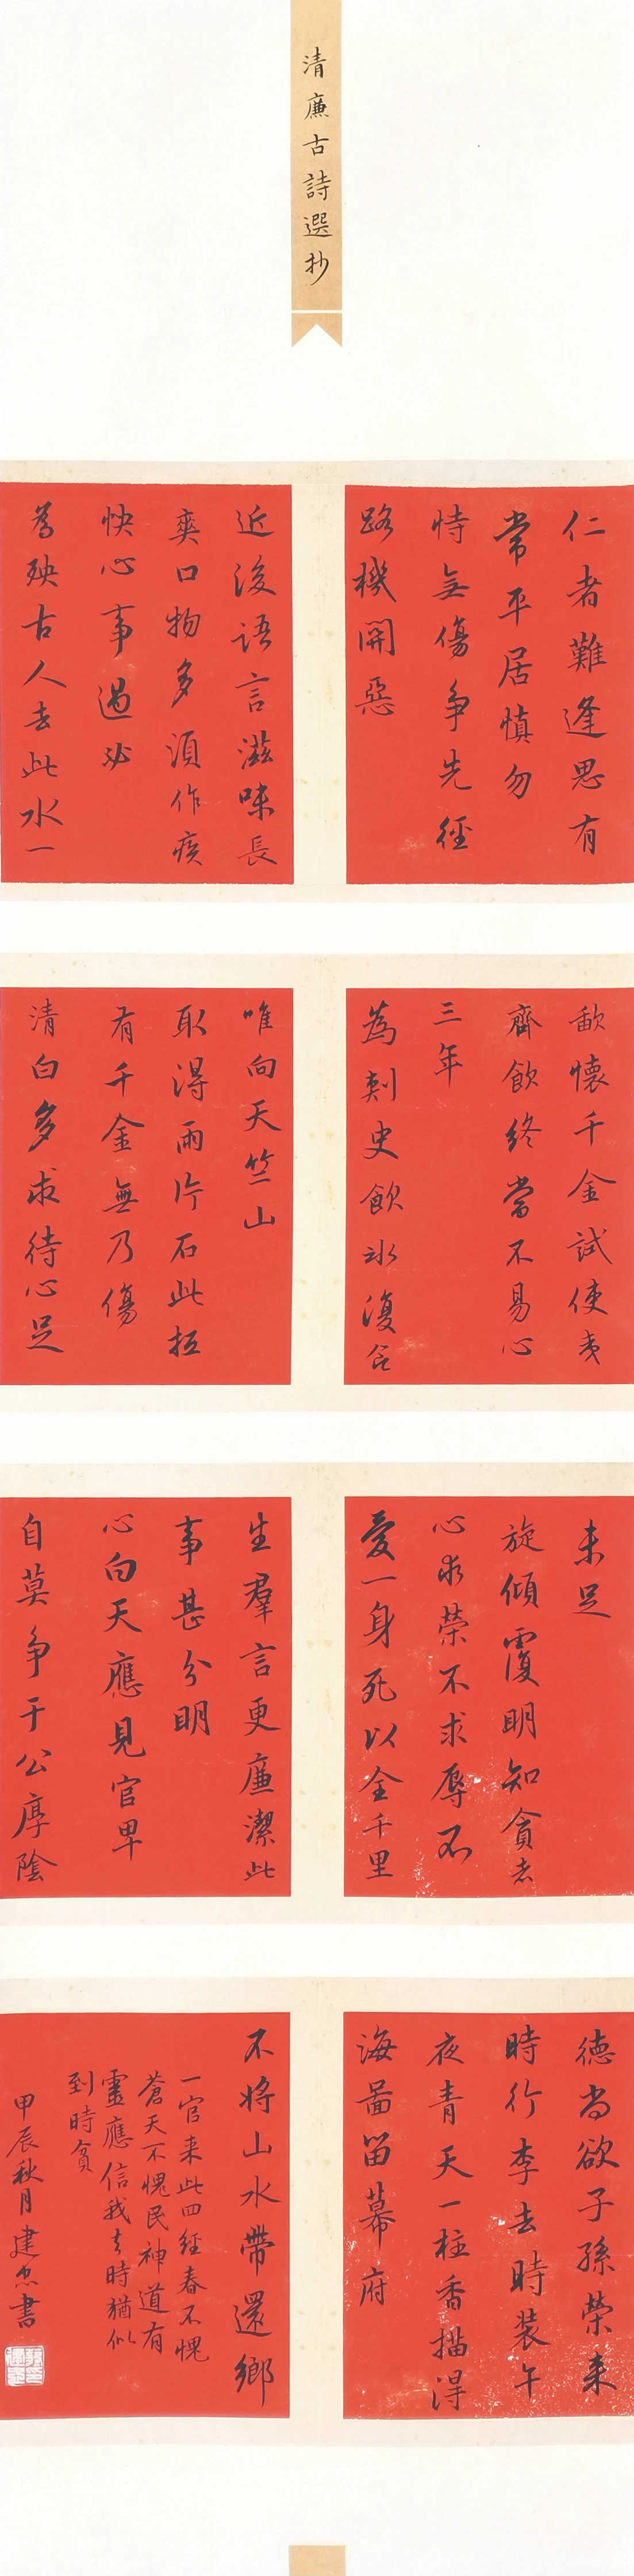 清廉古詩選抄
仁者難逢思有
常平居慎勿
恃無傷争先徑
路機関惡
近後語言滋味長
爽口物多須作疾
快心事過必
為殃古人去此水一
歃懷千金試使夷
齊飲終當不易心
三年
為刺史飲冰復食
唯向天竺山
取得兩片石此抵
有千金無乃傷
清白多求待心足
未足
旋傾覆明知貪者
心求榮不求辱不
愛一身死以金千里
生羣言更廉潔此
事甚分明
心向天應見官卑
自莫争于公厚陰
德尚欲子孫榮来
時行李去時装午
夜青天一柱香描得
海圖留幕府
不将山水帶還鄉
一官来此四經春不愧
蒼天不愧民神道有
靈應信我去時猶似
到時貧
甲辰秋月建忠書